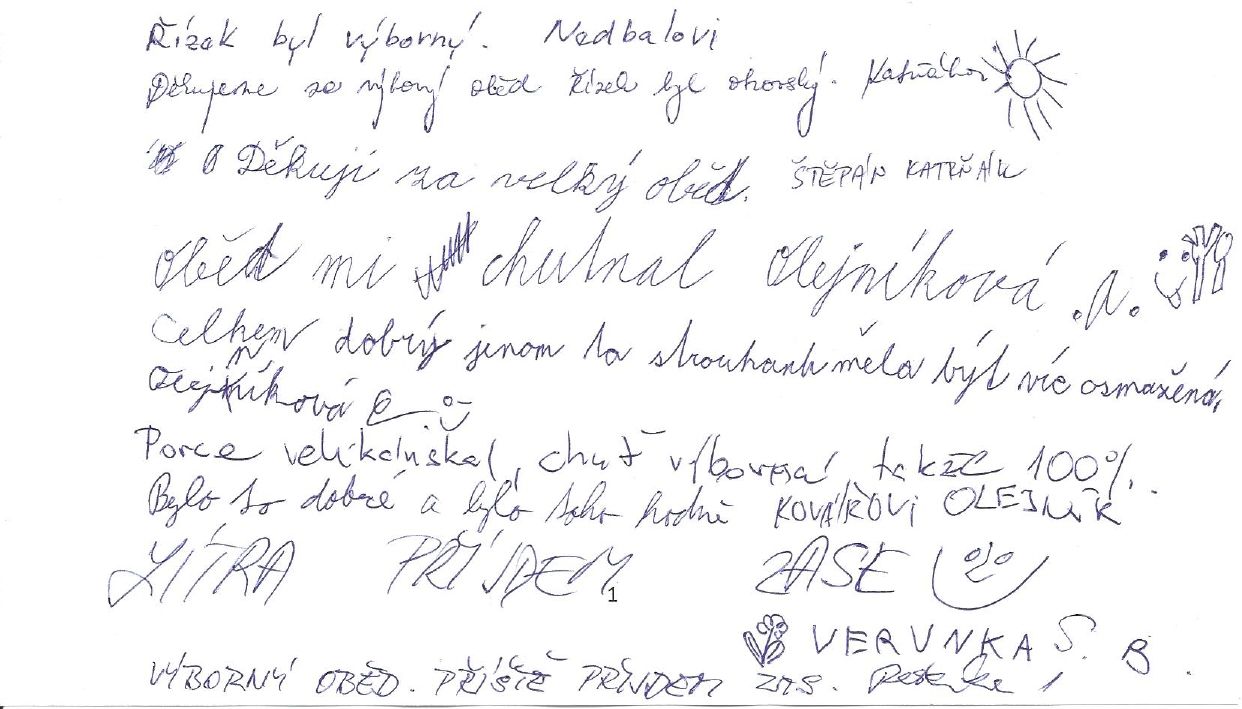 Řízek byl výborný. Nedbalovi
Děkujeme za výborný oběd řízek byl obrovský.
Děkuji za velký oběd. ŠTĚPÁN KATRŇÁK
Oběd mi chutnal Olejníková .A.
Celkem dobrý jenom ta strouhank měla být víc osmažená,
Olejníková
Porce velikánská, chuť výborná takže 100%.
Bylo to dobré a bylo toho hodně KOVÁŘOVI OLEJNÍK
ZÍTRA PŘÍJDEM ZASE
1
VERUNKA S. B.
VÝBORNÝ OBĚD. PŘÍŠTĚ PŘÍJDEM ZAS.